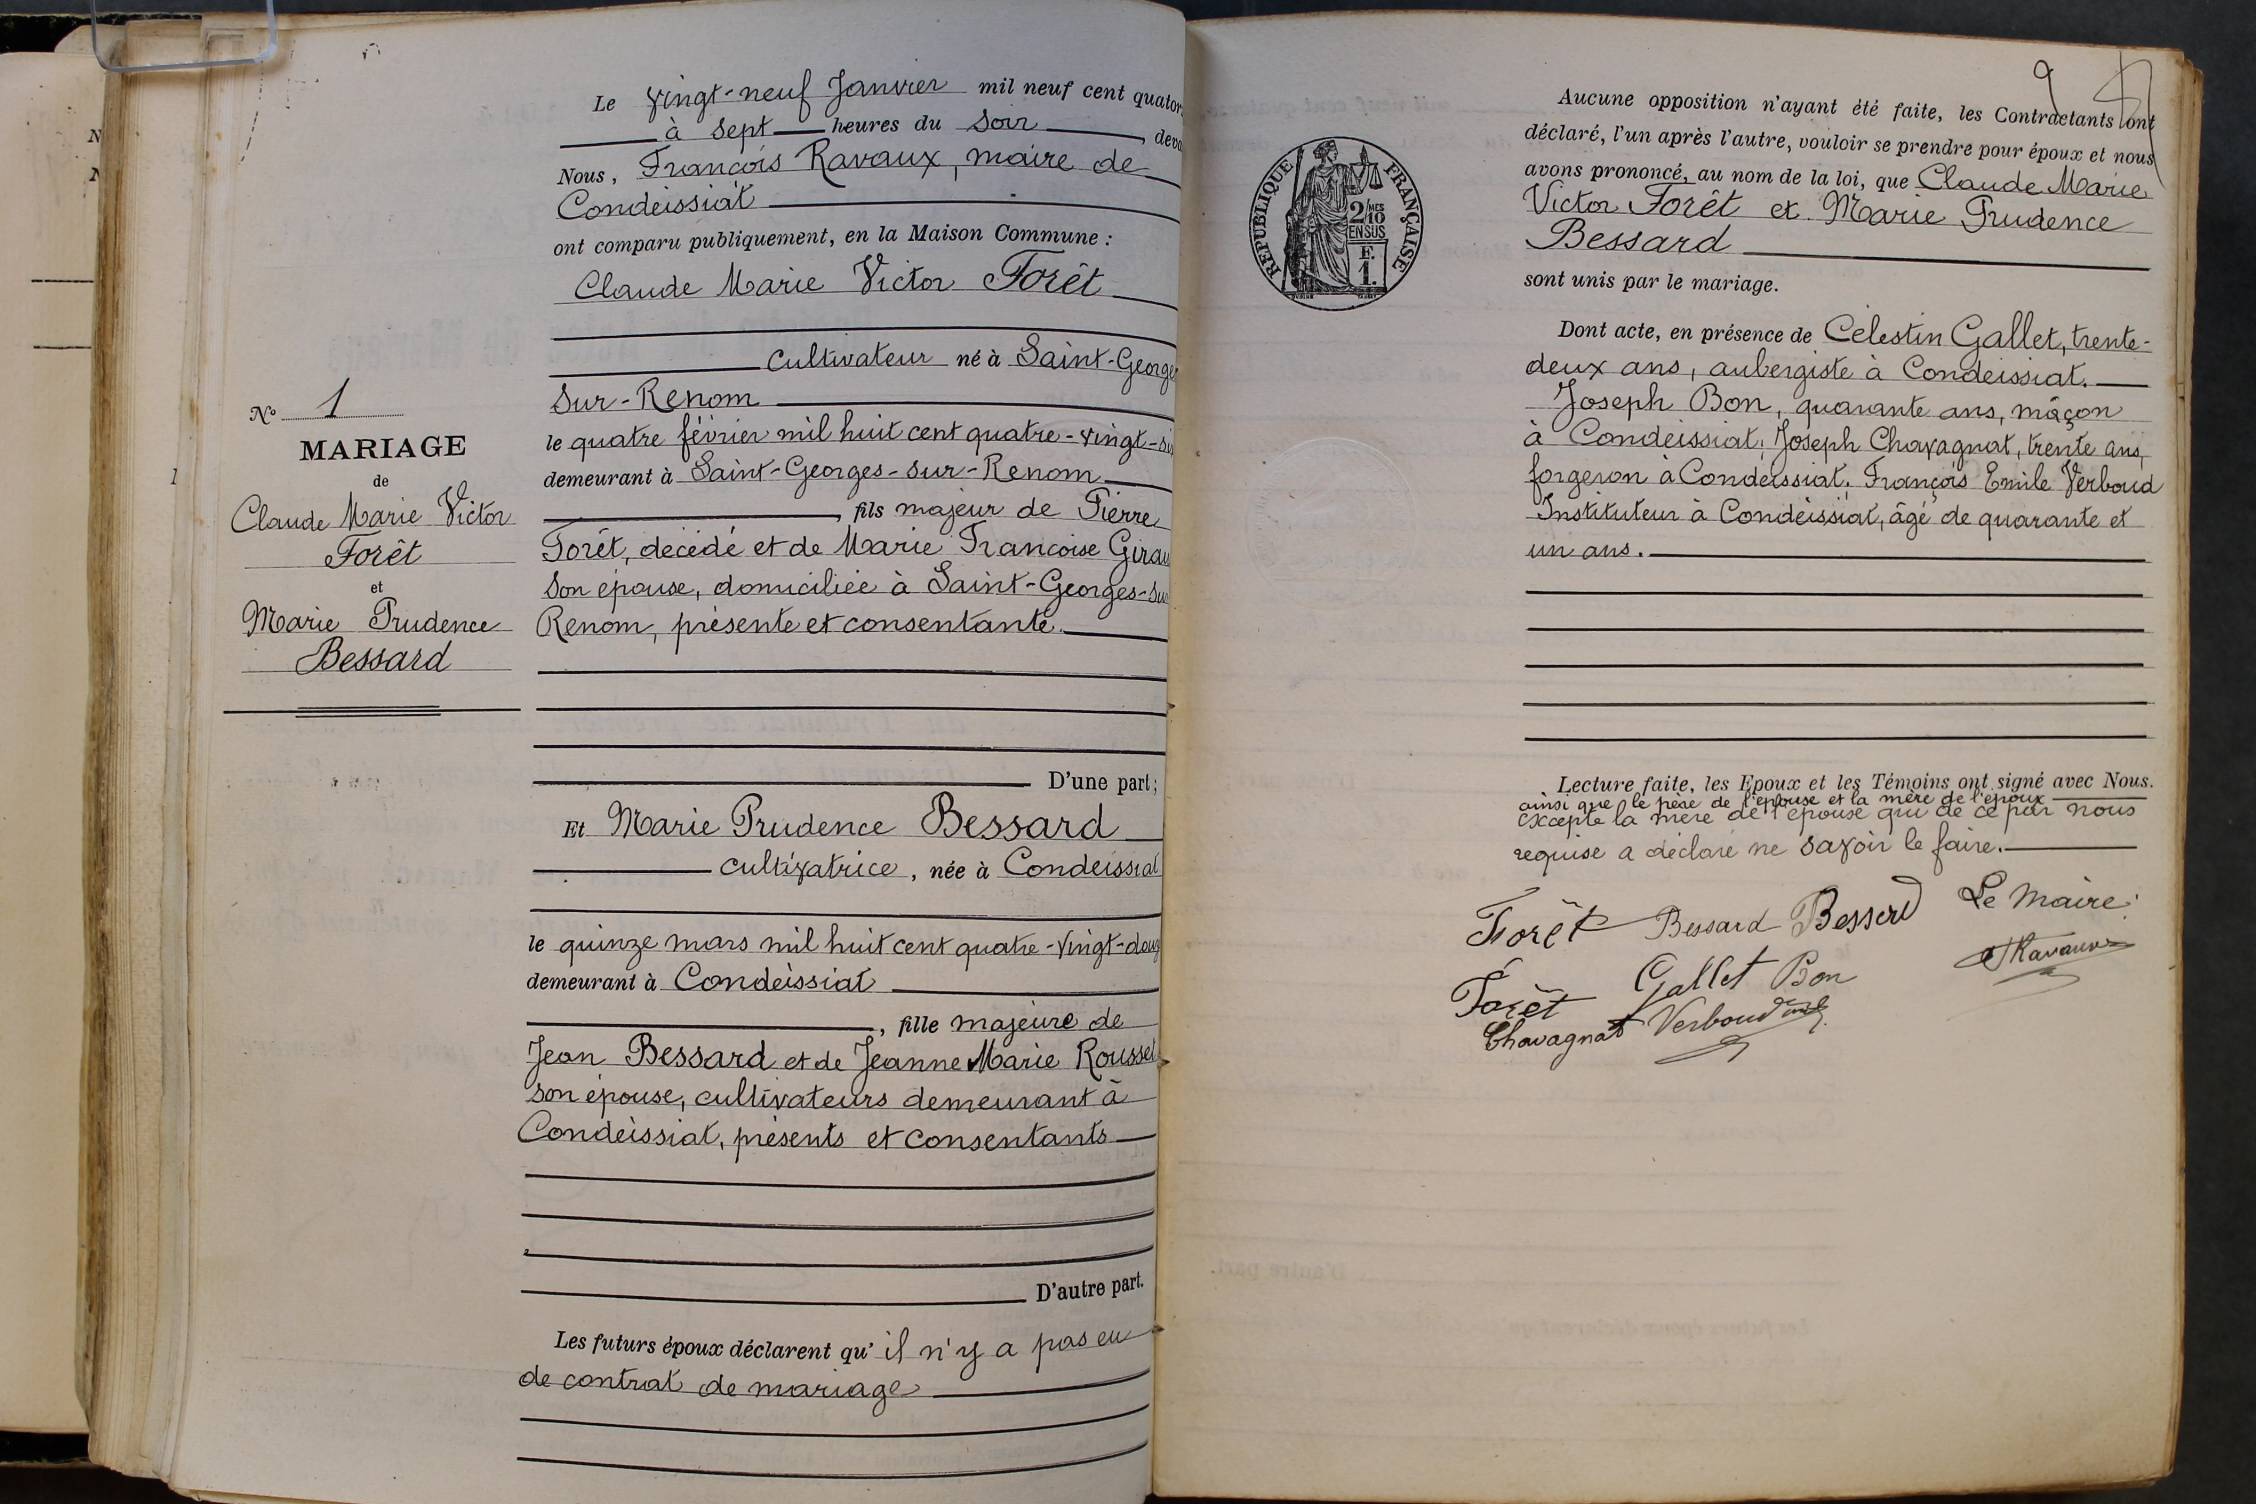 N
N
1
Nº 1
MARIAGE
de
Claude Marie Victor
Forêt
et
Marie Prudence
Bessard
Le vingt-neuf Janvier mil neuf cent quator
à sept heures du soir, deva
Nous, François Ravaux, maire de
Condeissiat
ont comparu publiquement, en la Maison Commune :
Claude Marie Victor Forêt
cultivateur né à Saint-Georges
sur-Renom
le quatre février mil huit cent quatre-vingt-six
demeurant à Saint-Georges-sur-Renom
, fils majeur de Pierre
Forêt, décédé et de Marie Françoise Girau
son épouse, domiciliée à Saint-Georges-su
Renom, présente et consentante.
D'une part ;
Et Marie Prudence Bessard
cultivatrice, née à Condeissiat
le quinze mars mil huit cent quatre-vingt-douz
demeurant à Condeissiat
, fille majeure de
Jean Bessard et de Jeanne Marie Rousset
son épouse, cultivateurs demeurant à
Condeissiat, présents et consentants
D'autre part.
Les futurs époux déclarent qu' il n'y a pas eu
de contrat de mariage
9
RÉPUBLIQUE FRANÇAISE
2/10 MES
EN SUS
F.
1.
Aucune opposition n'ayant été faite, les Contractants ont
déclaré, l'un après l'autre, vouloir se prendre pour époux et nous
avons prononcé, au nom de la loi, que Claude Marie
Victor Forêt et Marie Prudence
Bessard
sont unis par le mariage.
Dont acte, en présence de Célestin Gallet, trente-
deux ans, aubergiste à Condeissiat.
Joseph Bon, quarante ans, mâçon
à Condeissiat, Joseph Chavagnat, trente ans,
forgeron à Condeissiat, François Emile Verboud
Instituteur à Condeissiat, âgé de quarante et
un ans.
Lecture faite, les Epoux et les Témoins ont signé avec Nous.
ainsi que le père de l'épouse et la mère de l'époux
excepté la mère de l'épouse qui de ce par nous
requise a déclaré ne savoir le faire.
Forêt Bessard Bessard Le Maire :
Ravaux
Forêt Gallet Bon
Chavagnat Verboud